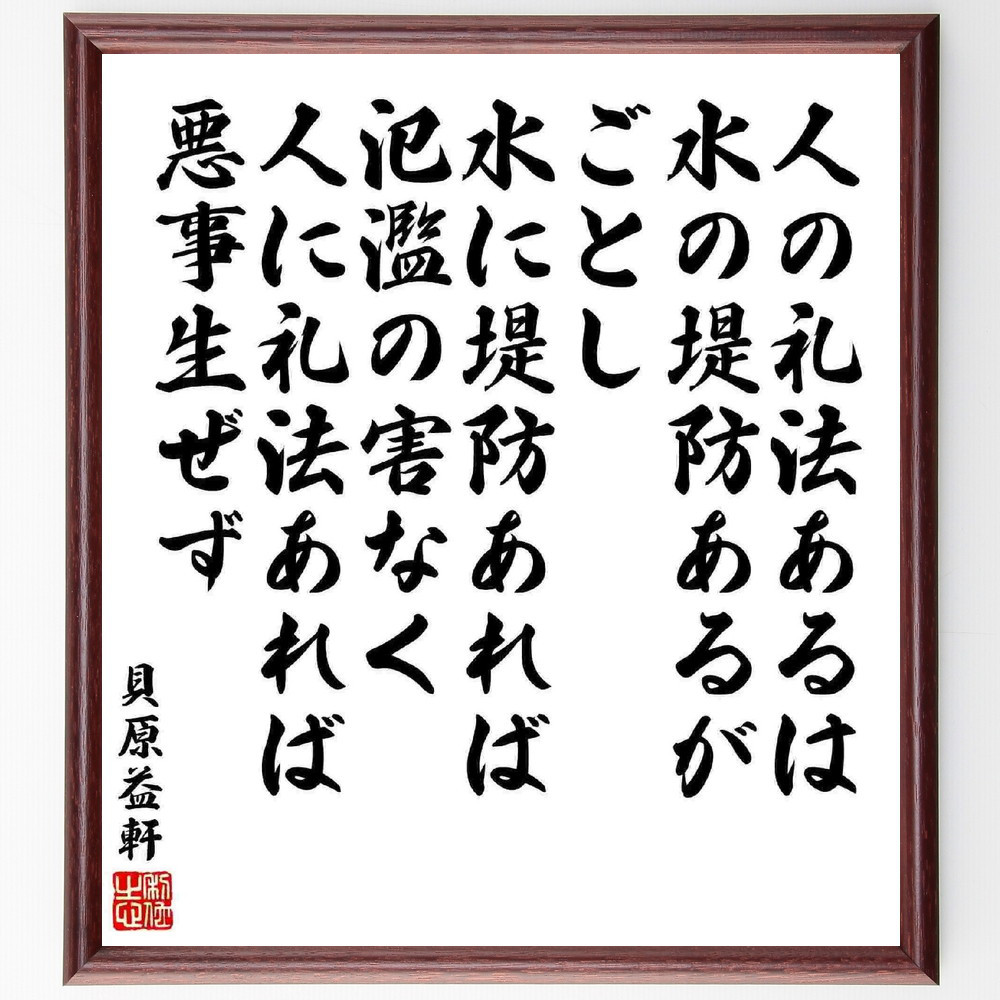 人の礼法あるは
水の堤防あるが
ごとし
水に堤防あれば
氾濫の害なく
人に礼法あれば
悪事生ぜず
貝原益軒